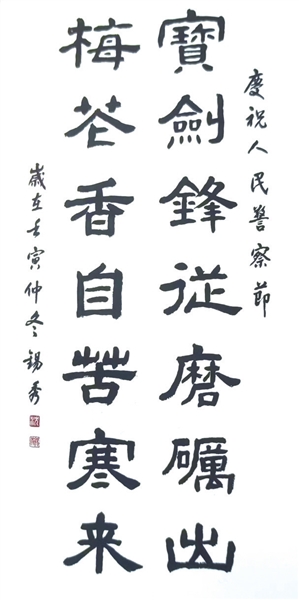 慶祝人民警察節
寶劍鋒從磨礪出
梅花香自苦寒来
歲在壬寅仲冬錫秀